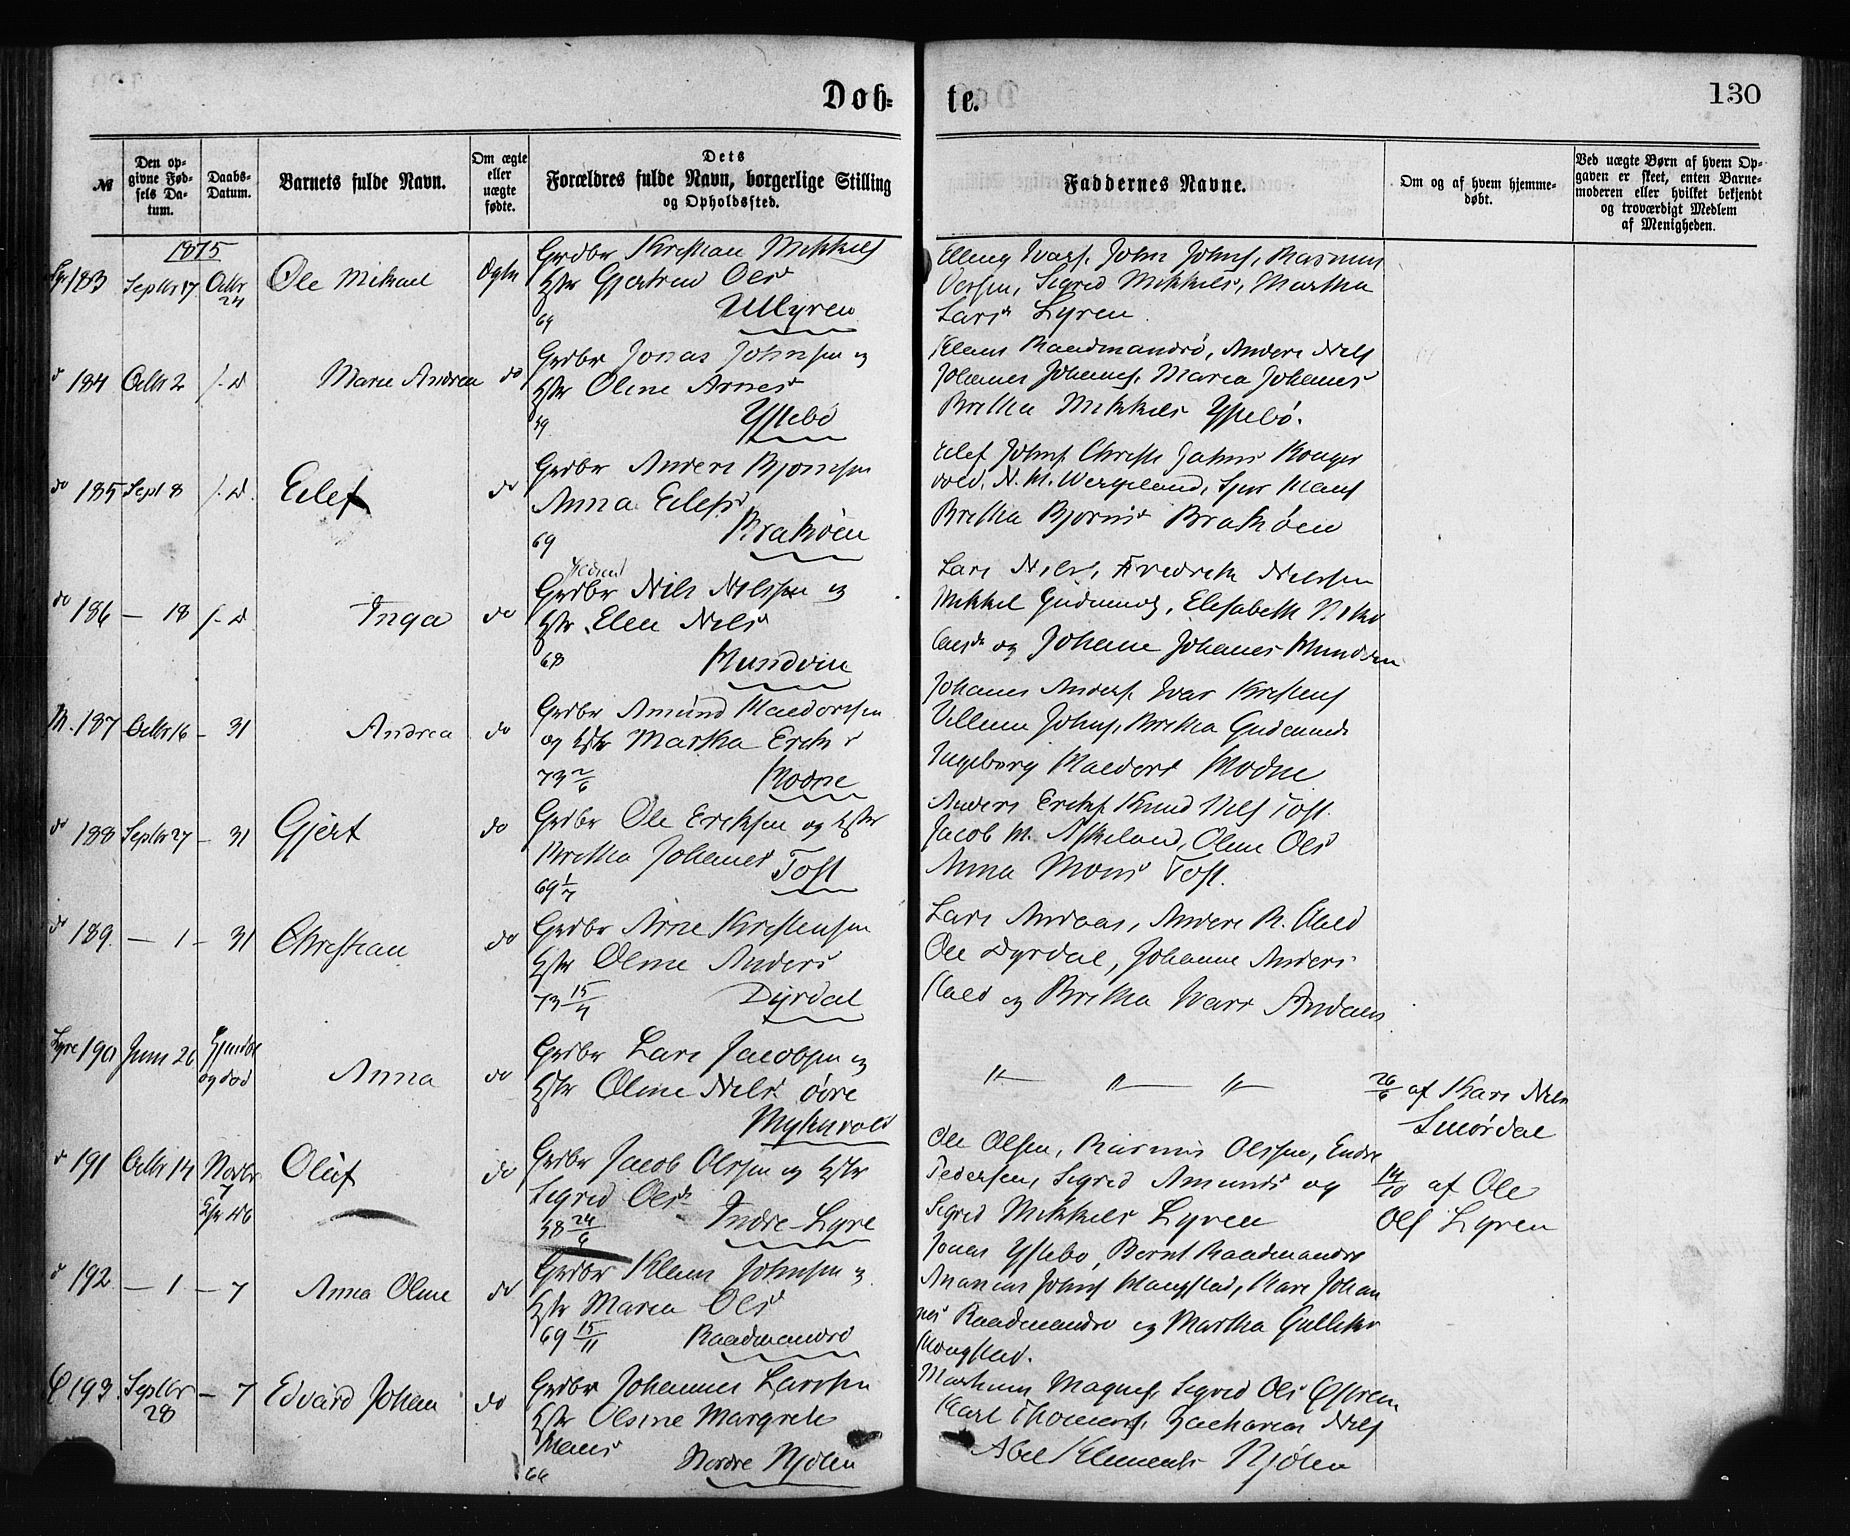 Døb-
te.
130
№
Den op-
givne Fød-
sels Da-
tum.
Daabs-
Datum.
Barnets fulde Navn.
Om ægte
eller
uægte
fødte.
Dets
Forældres fulde Navn, borgerlige Stilling
og Opholdssted.
Faddernes Navne.
Om og af hvem hjemme-
døbt.
Ved uægte Børn af hvem Op-
gaven er skeet, enten Barne-
moderen eller hvilket bekjendt
og troværdigt Medlem
af Menigheden.
1875
183 Septbr 17 Octbr 24 Ole Mikael Ægte
Grdbr Kristian Mikkels
Hstr Gjertrud Olsd
69 Utlyren
Elling Ivars. John Johns, Rasmus
Sigrid Mikkelsd, Martha
Larsd Lyren
184 Octbr 2 Marie Andrea do
Grdbr Jonas Johnsen og
Hstr Oline Arnesd
59 Ystebø
Klaus Raadmandsø, Anders Nils
Johannes Johannes, Maria Johannes
Britha Mikkels Ystebø.
do 185 Sept 8 Eilef do
Grdbr Anders Bjornsen
Anna Eilefsd
69
Eilef Johns Christi Johns
N. M. Wergeland,
Britha Bjornsd
do 186 – 18 Inga do
Grdbr Nils Nilssen og
Hstr Elen Nilsd
68 Mundøen
Lars Nils, Fredrik Nilssen
Mikkel Gudmunds, Elisabeth
og Johanne Johannes
M. 187 Octbr 16 – 31 Andrea do
Grdbr Amund Haldorsen
og Hstr Martha Eriks
73 2/6 Modne
Johannes Anders. Ivar Kristens
Villum Johns, Britha Gudmunds
Ingeborg Haldors Modne
do 188 Septbr 27 – 31 Gjert do
Grdbr Ole Eriksen og Hstr
Britha Johannesd
69 1/7 Toft
Anders Eriks. Knud Nils Toft.
Jacob M. Askeland, Oline Olsd
Anna Monsd Toft.
do 189 – 1 – 31 Christian do
Grdbr Arne Kristensen
Hstr Oline Anders
73 15/4 Dyrdal
Lars Andaas, Anders R.
Ole Dyrdal, Johanne Anders
og Britha Ivars Andaas
Lyre 190 Juni 26 og død Anna do
Grdbr Lars Jacobsen og
Hstr Oline Nilsd øvre
Myhrvold
〃 〃 〃
26/6 af Kari Nils
Smørdal
191 Octbr 14 Novbr 7 Oluf do
Grdbr Jacob Olssen og Hstr
Sigrid Olsd
58 24/6 Indre-Lyre
Ole Olsen, Rasmus Olssen, Endre
Pedersen, Sigrid Amunds og
Sigrid Mikkels Lyren
14/10 af Ole
Ols Lyren
192 – 1 – 7 Anna Oline do
Grdbr Klaus Johnsen og
Hstr Maria Olsd
69 15/11 Raadmandsø
Jonas Ystebø, Bernt Raadmandsø
Ananias Johns Haugstad, Kari Johan
nes Raadmandsø og Martha Gulliks
Haugstad.
193 Septbr 28 – 7 Edvard Johan do
Grdbr Johannes Larssen
Hstr Olsine Margrete
66 Nordre Njølen
Magnus, Sigrid Ols
Karl Thomas, Zacharias Nils
Abel Klements Njølen